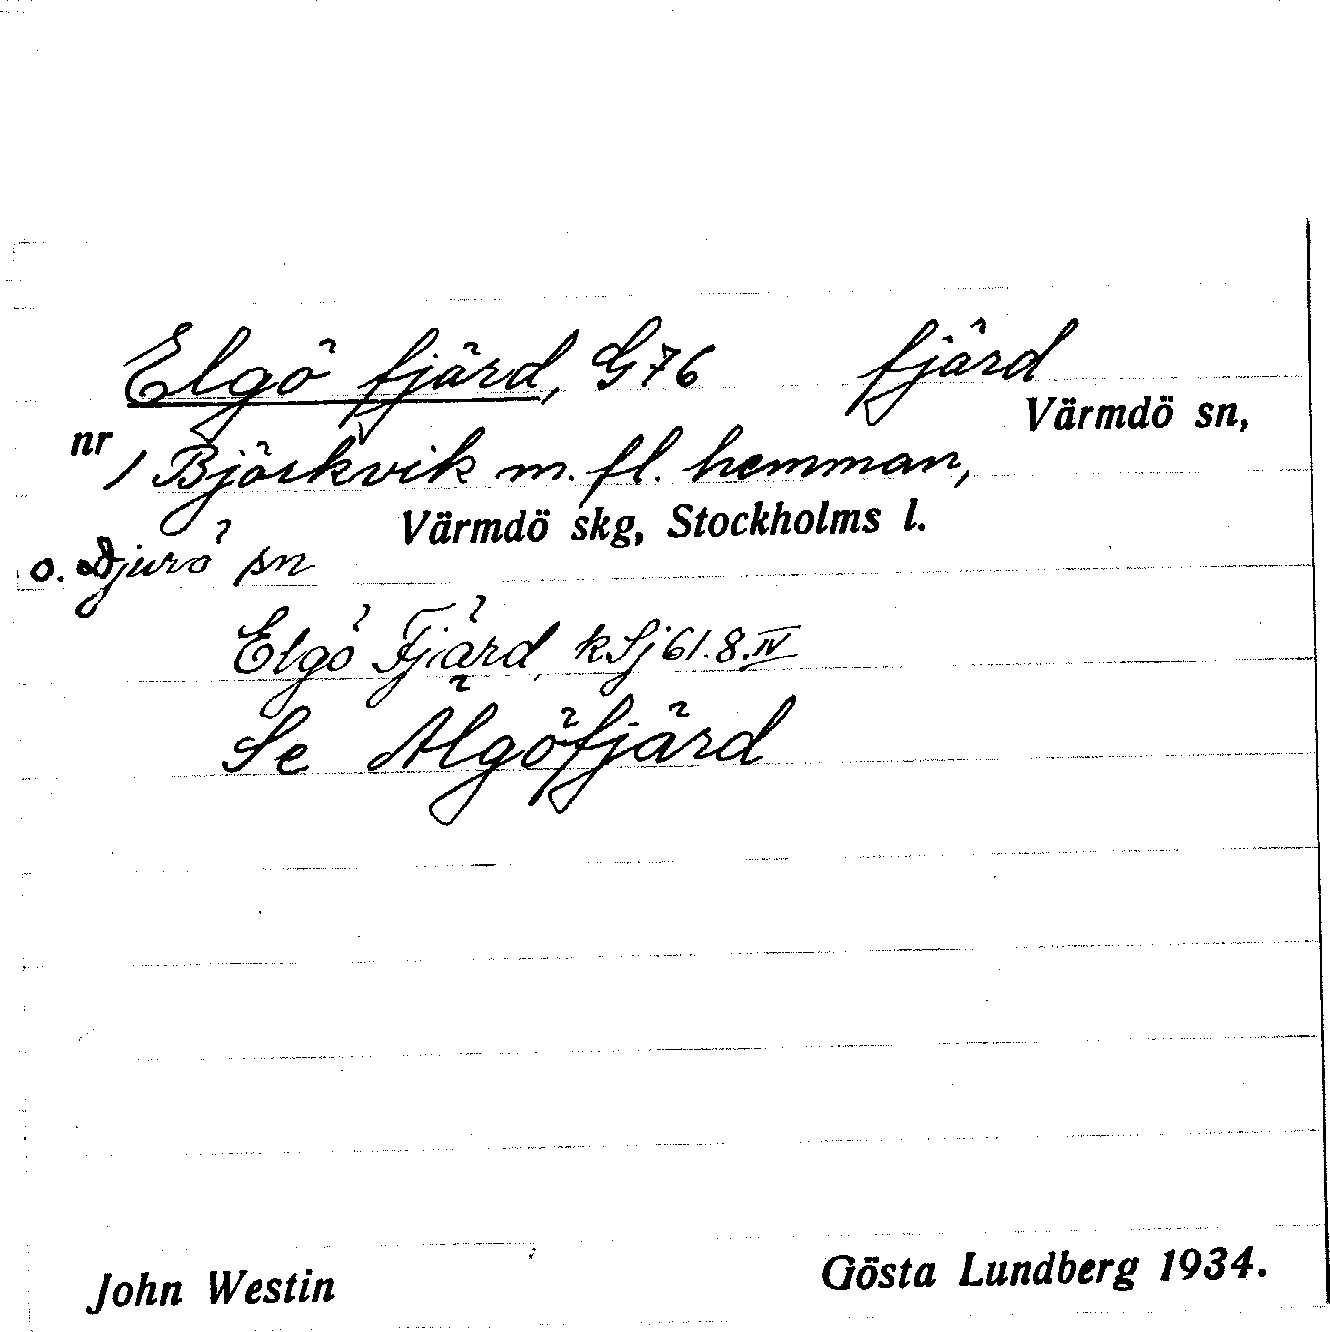 Elgö fjärd, G76 fjärd
Värmdö sn,
nr 1 Björkvik m. fl. hemman,
Värmdö skg, Stockholms l.
o. Djurö sn
Elgö Fjärd, kSj 61.8.IV
Se Älgöfjärd
John Westin Gösta Lundberg 1934.